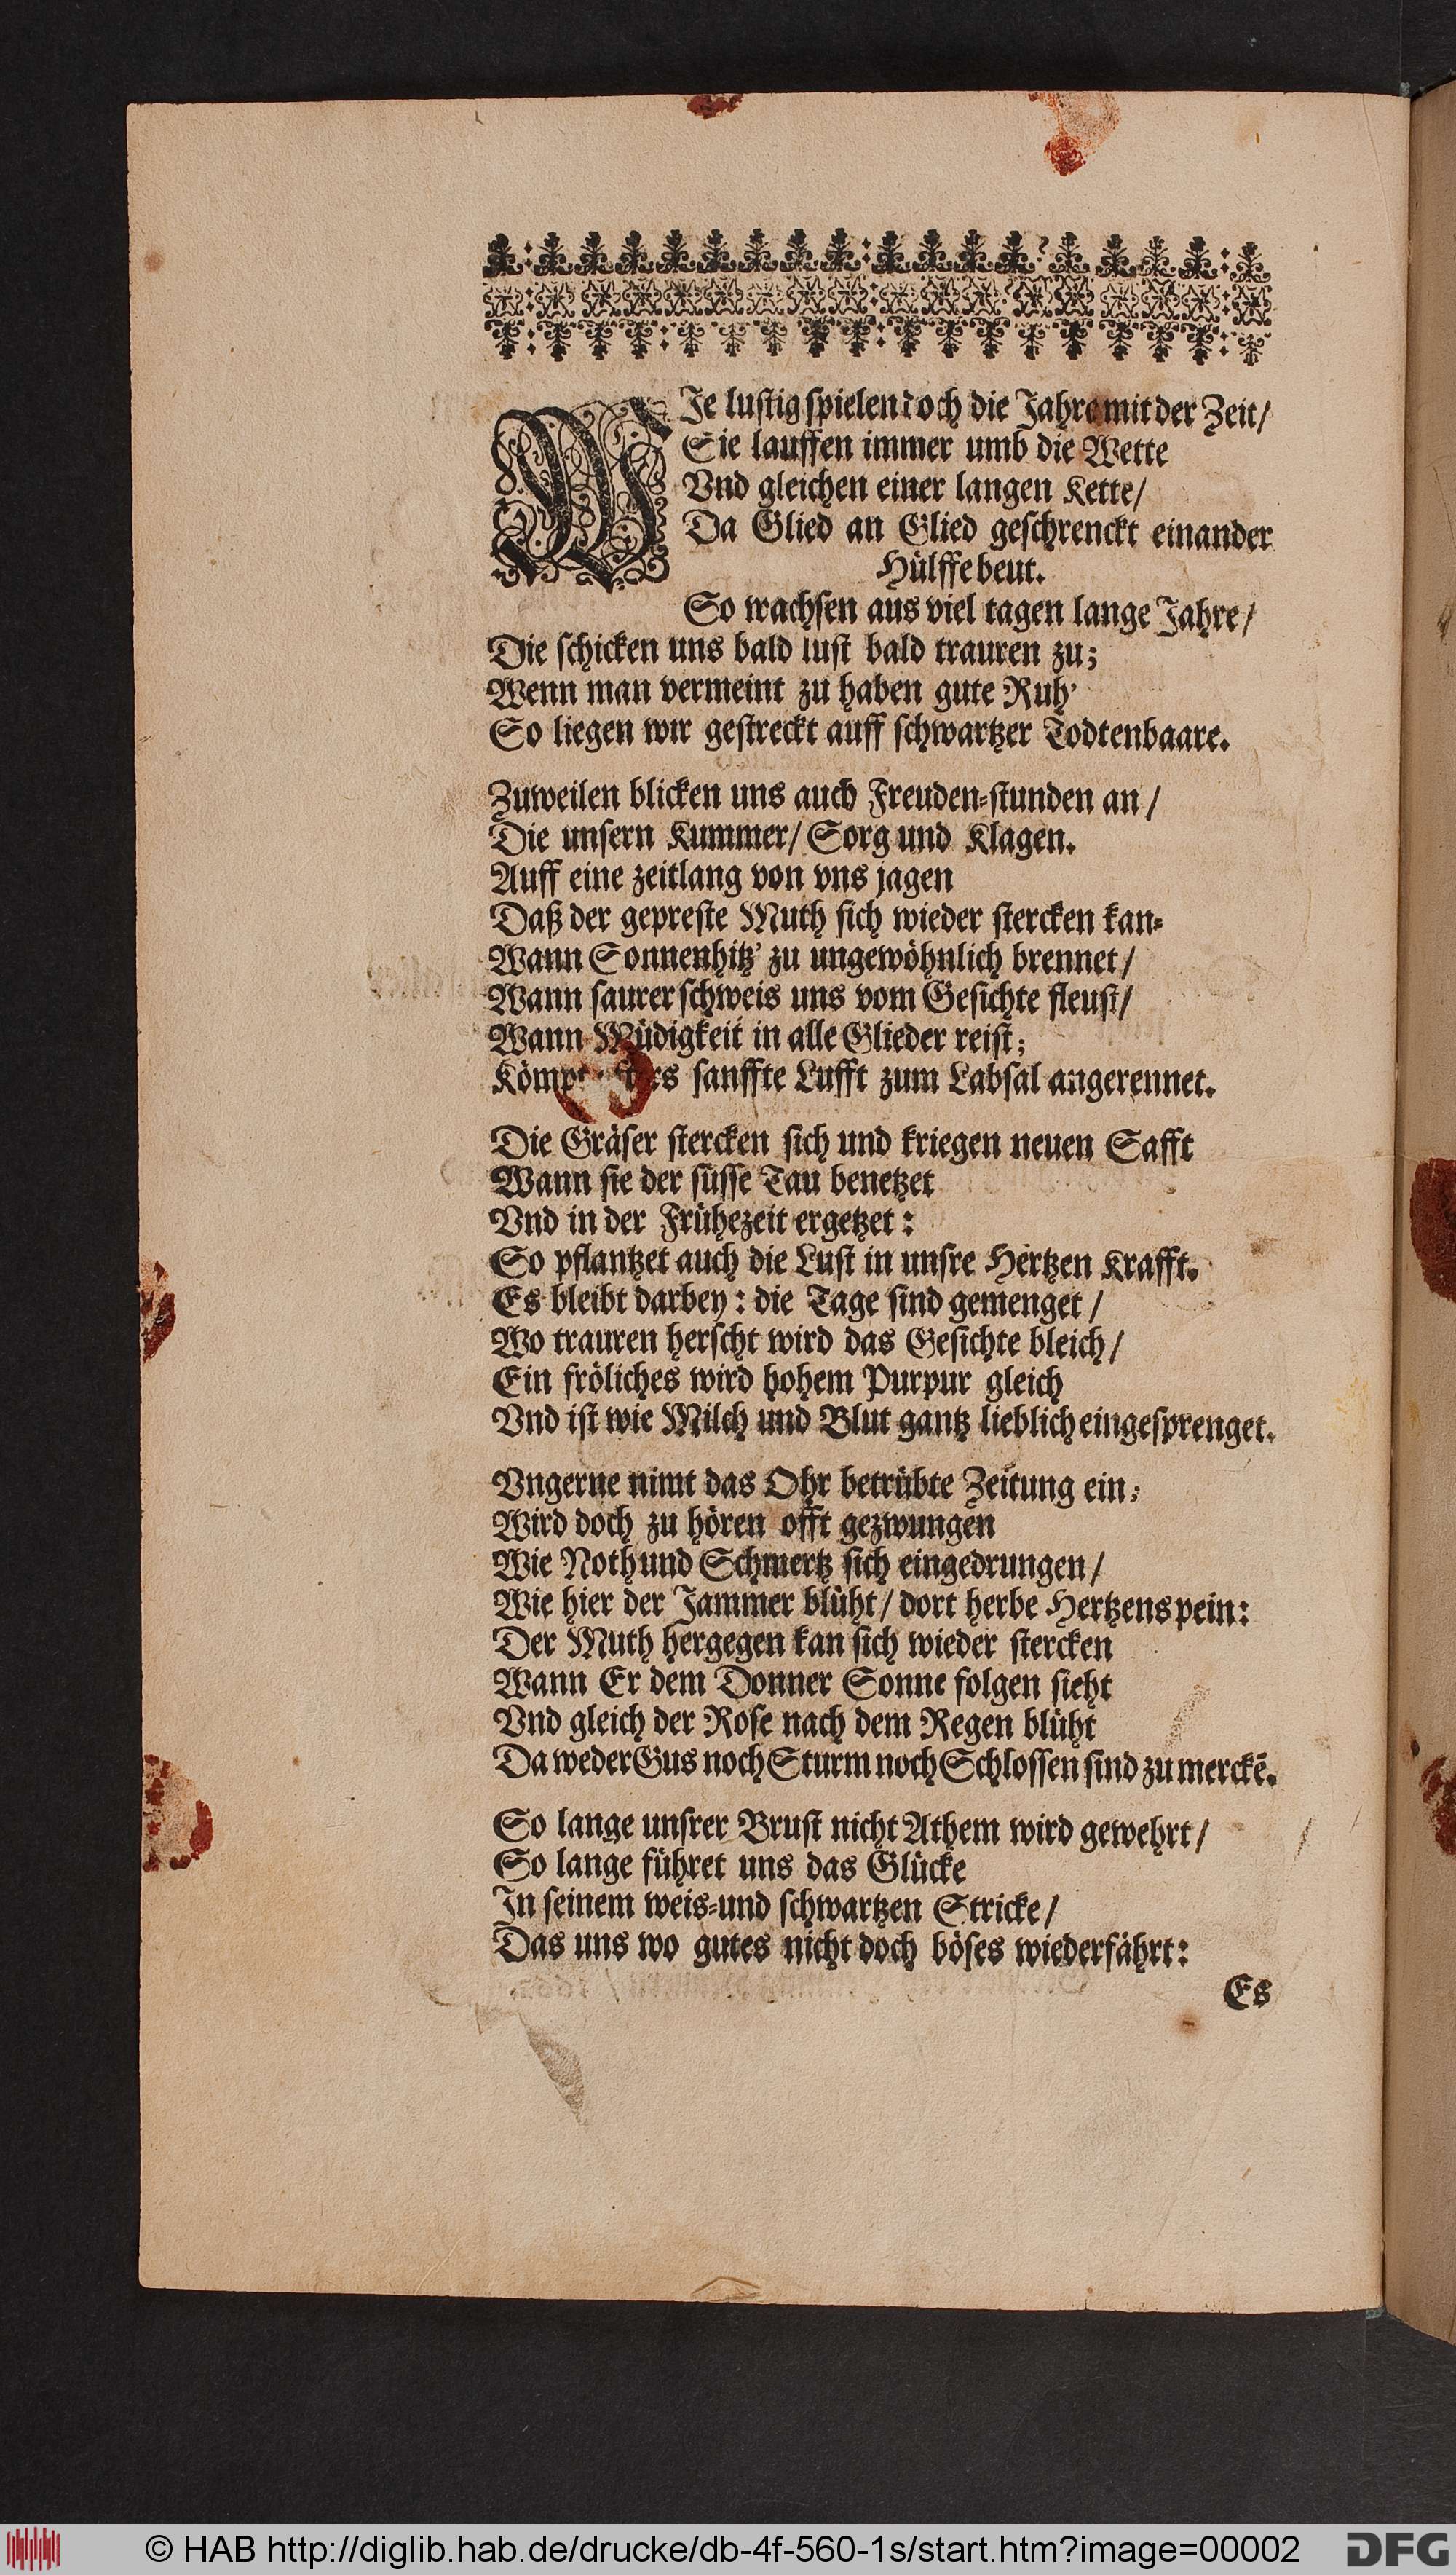 WJe lustig spielen doch die Jahre mit der Zeit/
Sie lauffen immer umb die Wette
Vnd gleichen einer langen Kette/
Da Glied an Glied geschrenckt einander
Hülffe beut.
So wachsen aus viel tagen lange Jahre/
Die schicken uns bald lust bald trauren zu;
Wenn man vermeint zu haben gute Ruh'
So liegen wir gestreckt auff schwartzer Todtenbaare.
Zuweilen blicken uns auch Freuden-stunden an/
Die unsern Kummer/ Sorg und Klagen.
Auff eine zeitlang von vns jagen
Daß der gepreste Muth sich wieder stercken kan-
Wann Sonnenhitz' zu ungewöhnlich brennet/
Wann saurer schweis uns vom Gesichte fleust/
Wann Müdigkeit in alle Glieder reist;
Kömpt sanffte Lufft zum Labsal angerennet.
Die Gräser stercken sich und kriegen neuen Safft
Wann sie der süsse Tau benetzet
Vnd in der Frühezeit ergetzet:
So pflantzet auch die Lust in unsre Hertzen Krafft.
Es bleibt darbey: die Tage sind gemenget/
Wo trauren herscht wird das Gesichte bleich/
Ein fröliches wird hohem Purpur gleich
Vnd ist wie Milch und Blut gantz lieblich eingesprenget.
Vngerne nimt das Ohr betrübte Zeitung ein;
Wird doch zu hören offt gezwungen
Wie Noth und Schmertz sich eingedrungen/
Wie hier der Jammer blüht/ dort herbe Hertzens pein:
Der Muth hergegen kan sich wieder stercken
Wann Er dem Donner Sonne folgen sieht
Vnd gleich der Rose nach dem Regen blüht
Da weder Gus noch Sturm noch Schlossen sind zu merckē.
So lange unsrer Brust nicht Athem wird gewehrt/
So lange führet uns das Glücke
In seinem weis-und schwartzen Stricke/
Das uns wo gutes nicht doch böses wiederfährt:
Es
© HAB http://diglib.hab.de/drucke/db-4f-560-1s/start.htm?image=00002
DFG